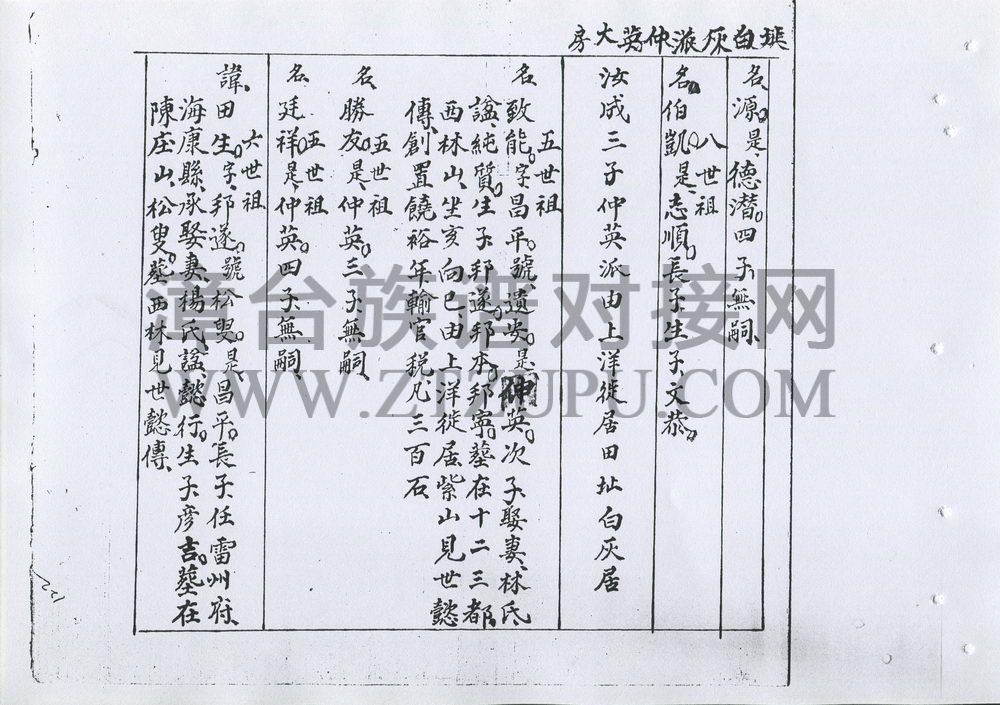 埕白灰派仲英大房
名源是德潜四子無嗣
八世祖
名伯凱是志順長子生子文恭
汝成三子仲英派由上洋徙居田址白灰居
五世祖
名致能字昌平號遺安是仲英次子娶妻林氏
諡純質生子邦遂邦本邦寧墓在十二三都
西林山坐亥向巳由上洋徙居紫山見世懿
傳創置饒裕年輸官税凡三百石
五世祖
名勝友是仲英三子無嗣
五世祖
名廷祥是仲英四子無嗣
六世祖
諱田生字邦遂號松叟是昌平長子任雷州府
海康縣承娶妻楊氏諡懿行生子彦吉墓在
陳庄山松叟墓西林見世懿傳
章台族谱对接网
WWW.ZTZUPU.COM